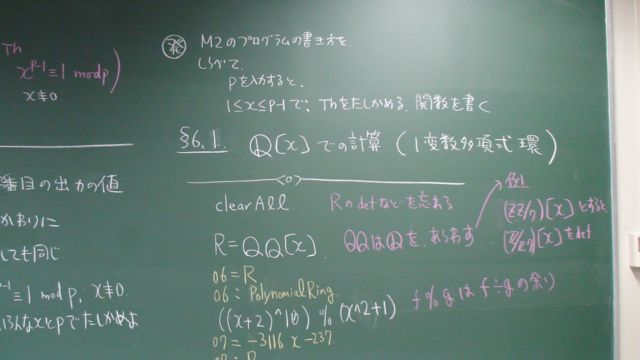 Th
x^{p-1}≡1 mod p)
x≢0
番目の出力の値
かわりに
しても同じ
≡1 mod p, x≢0
いろんなxとpでたしかめよ
M2のプログラムの書き方を
しらべて、
pを入力すると、
1≤x≤p-1で、Thをたしかめる関数を書く
§6.1 Q[x]での計算(1変数多項式環)
clearAll Rのdefなどを忘れる
例
R=QQ[x] QQはQをあらわす
(ZZ/7)[x]とすると
(Z/7Z)[x]をdef
o6=R
o6:PolynomialRing
((x+2)^10)%(x^2+1) f%gはf÷gの余り
o7=-3116x-237
o7:R